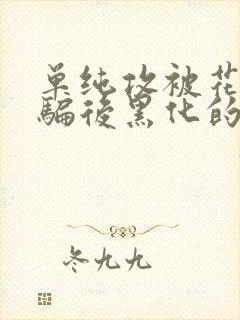 单纯攻被花
骗后黑化的
冬九九